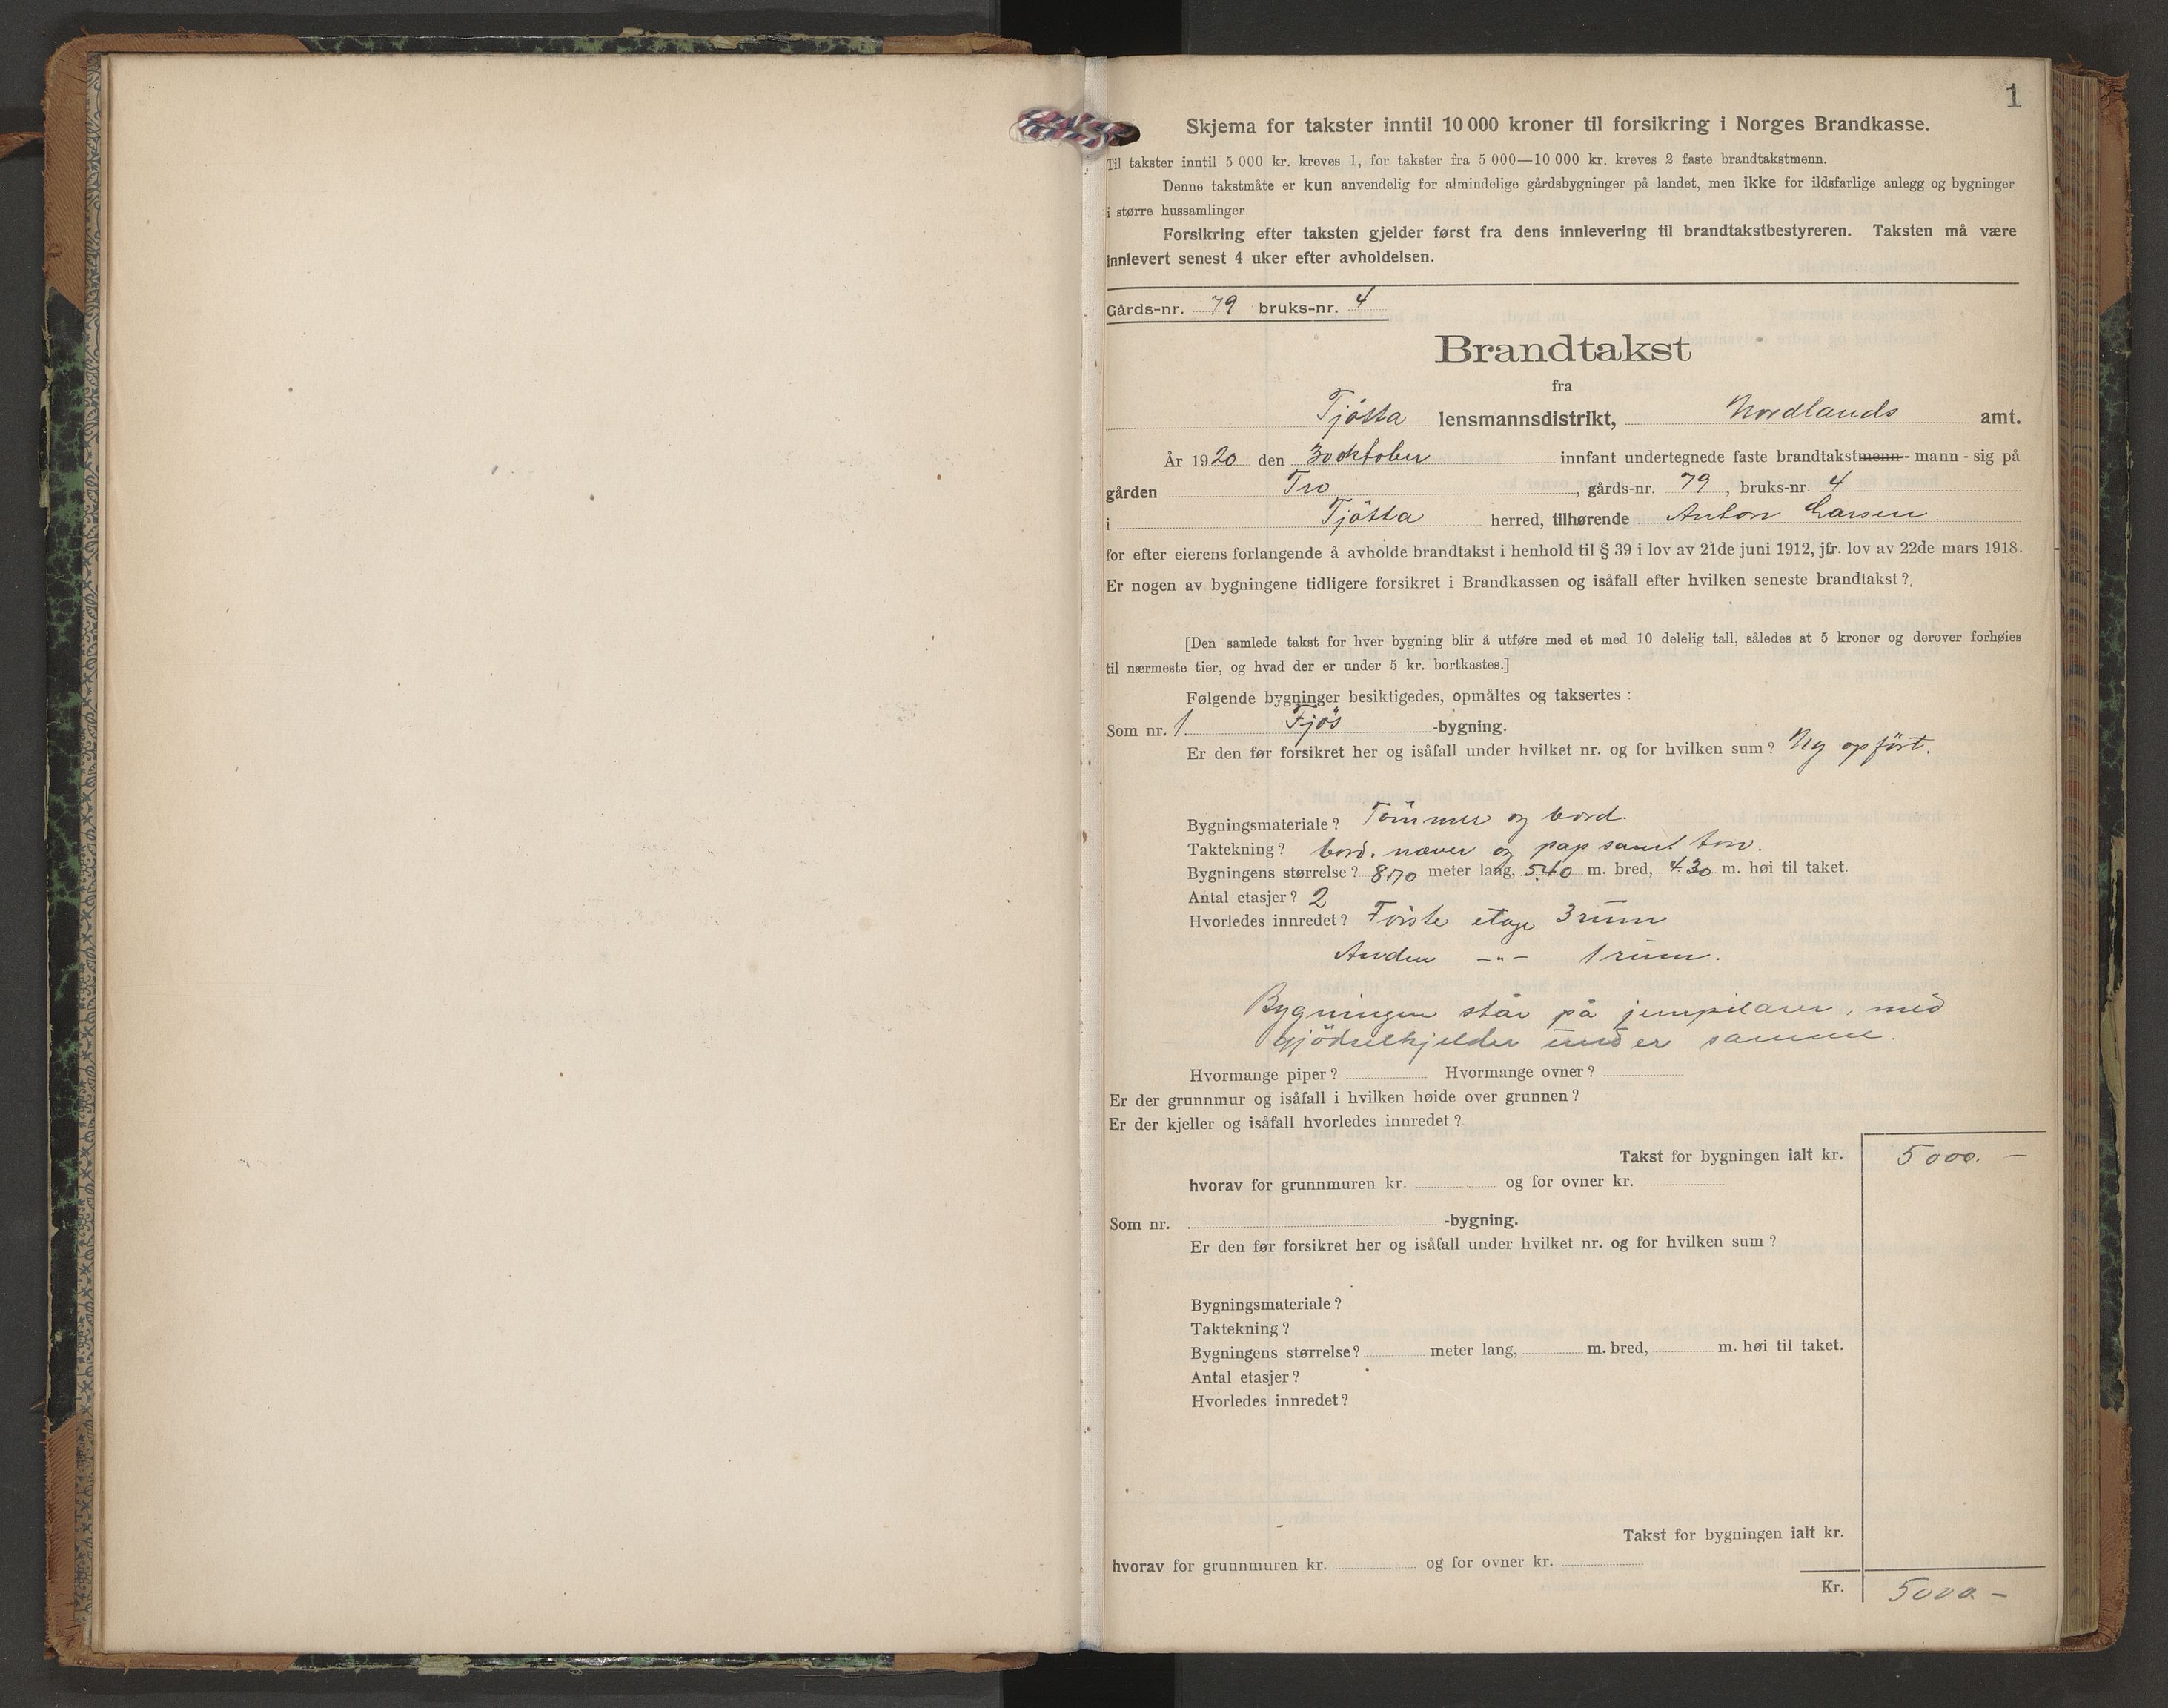 1
Skjema for takster inntil 10 000 kroner til forsikring i Norges Brandkasse.
Til takster inntil 5 000 kr. kreves 1, for takster fra 5 000—10 000 kr. kreves 2 faste brandtakstmenn.
Denne takstmåte er kun anvendelig for almindelige gårdsbygninger på landet, men ikke for ildsfarlige anlegg og bygninger
i større hussamlinger.
Forsikring efter taksten gjelder først fra dens innlevering til brandtakstbestyreren. Taksten må være
innlevert senest 4 uker efter avholdelsen.
Gårds-nr. 79 bruks-nr. 4
Brandtakst
fra
Tjøtta lensmannsdistrikt, Nordlands amt.
År 1920 den 30 oktober innfant undertegnede faste brandtakstmenn - mann - sig på
gården Tro, gårds-nr. 79, bruks-nr. 4
i Tjøtta herred, tilhørende Anton Larsen.
for efter eierens forlangende å avholde brandtakst i henhold til § 39 i lov av 21de juni 1912, jfr. lov av 22de mars 1918.
Er nogen av bygningene tidligere forsikret i Brandkassen og isåfall efter hvilken seneste brandtakst?
[Den samlede takst for hver bygning blir å utføre med et med 10 delelig tall, således at 5 kroner og derover forhøies
til nærmeste tier, og hvad der er under 5 kr. bortkastes.]
Følgende bygninger besiktigedes, opmåltes og taksertes :
Som nr. 1. Fjös -bygning.
Er den før forsikret her og isåfall under hvilket nr. og for hvilken sum? Ny opført.
Bygningsmateriale? Tömmer og bord.
Taktekning? bord, næver og pap samt torv.
Bygningens størrelse? 8.70 meter lang, 5.40 m. bred, 4.30 m. høi til taket.
Antal etasjer? 2
Hvorledes innredet? Förste etage 3 rum
Anden -"- 1 rum.
Bygningen står på jernpilarer, med
gjödselkjelder under samme.
Hvormange piper? Hvormange ovner?
Er der grunnmur og isåfall i hvilken høide over grunnen?
Er der kjeller og isåfall hvorledes innredet?
Takst for bygningen ialt kr. 5000. —
hvorav for grunnmuren kr. og for ovner kr.
Som nr. -bygning.
Er den før forsikret her og isåfall under hvilket nr. og for hvilken sum?
Bygningsmateriale?
Taktekning?
Bygningens størrelse? meter lang, m. bred, m. høi til taket.
Antal etasjer?
Hvorledes innredet?
Takst for bygningen ialt kr.
hvorav for grunnmuren kr. og for ovner kr.
Kr. 5000. —